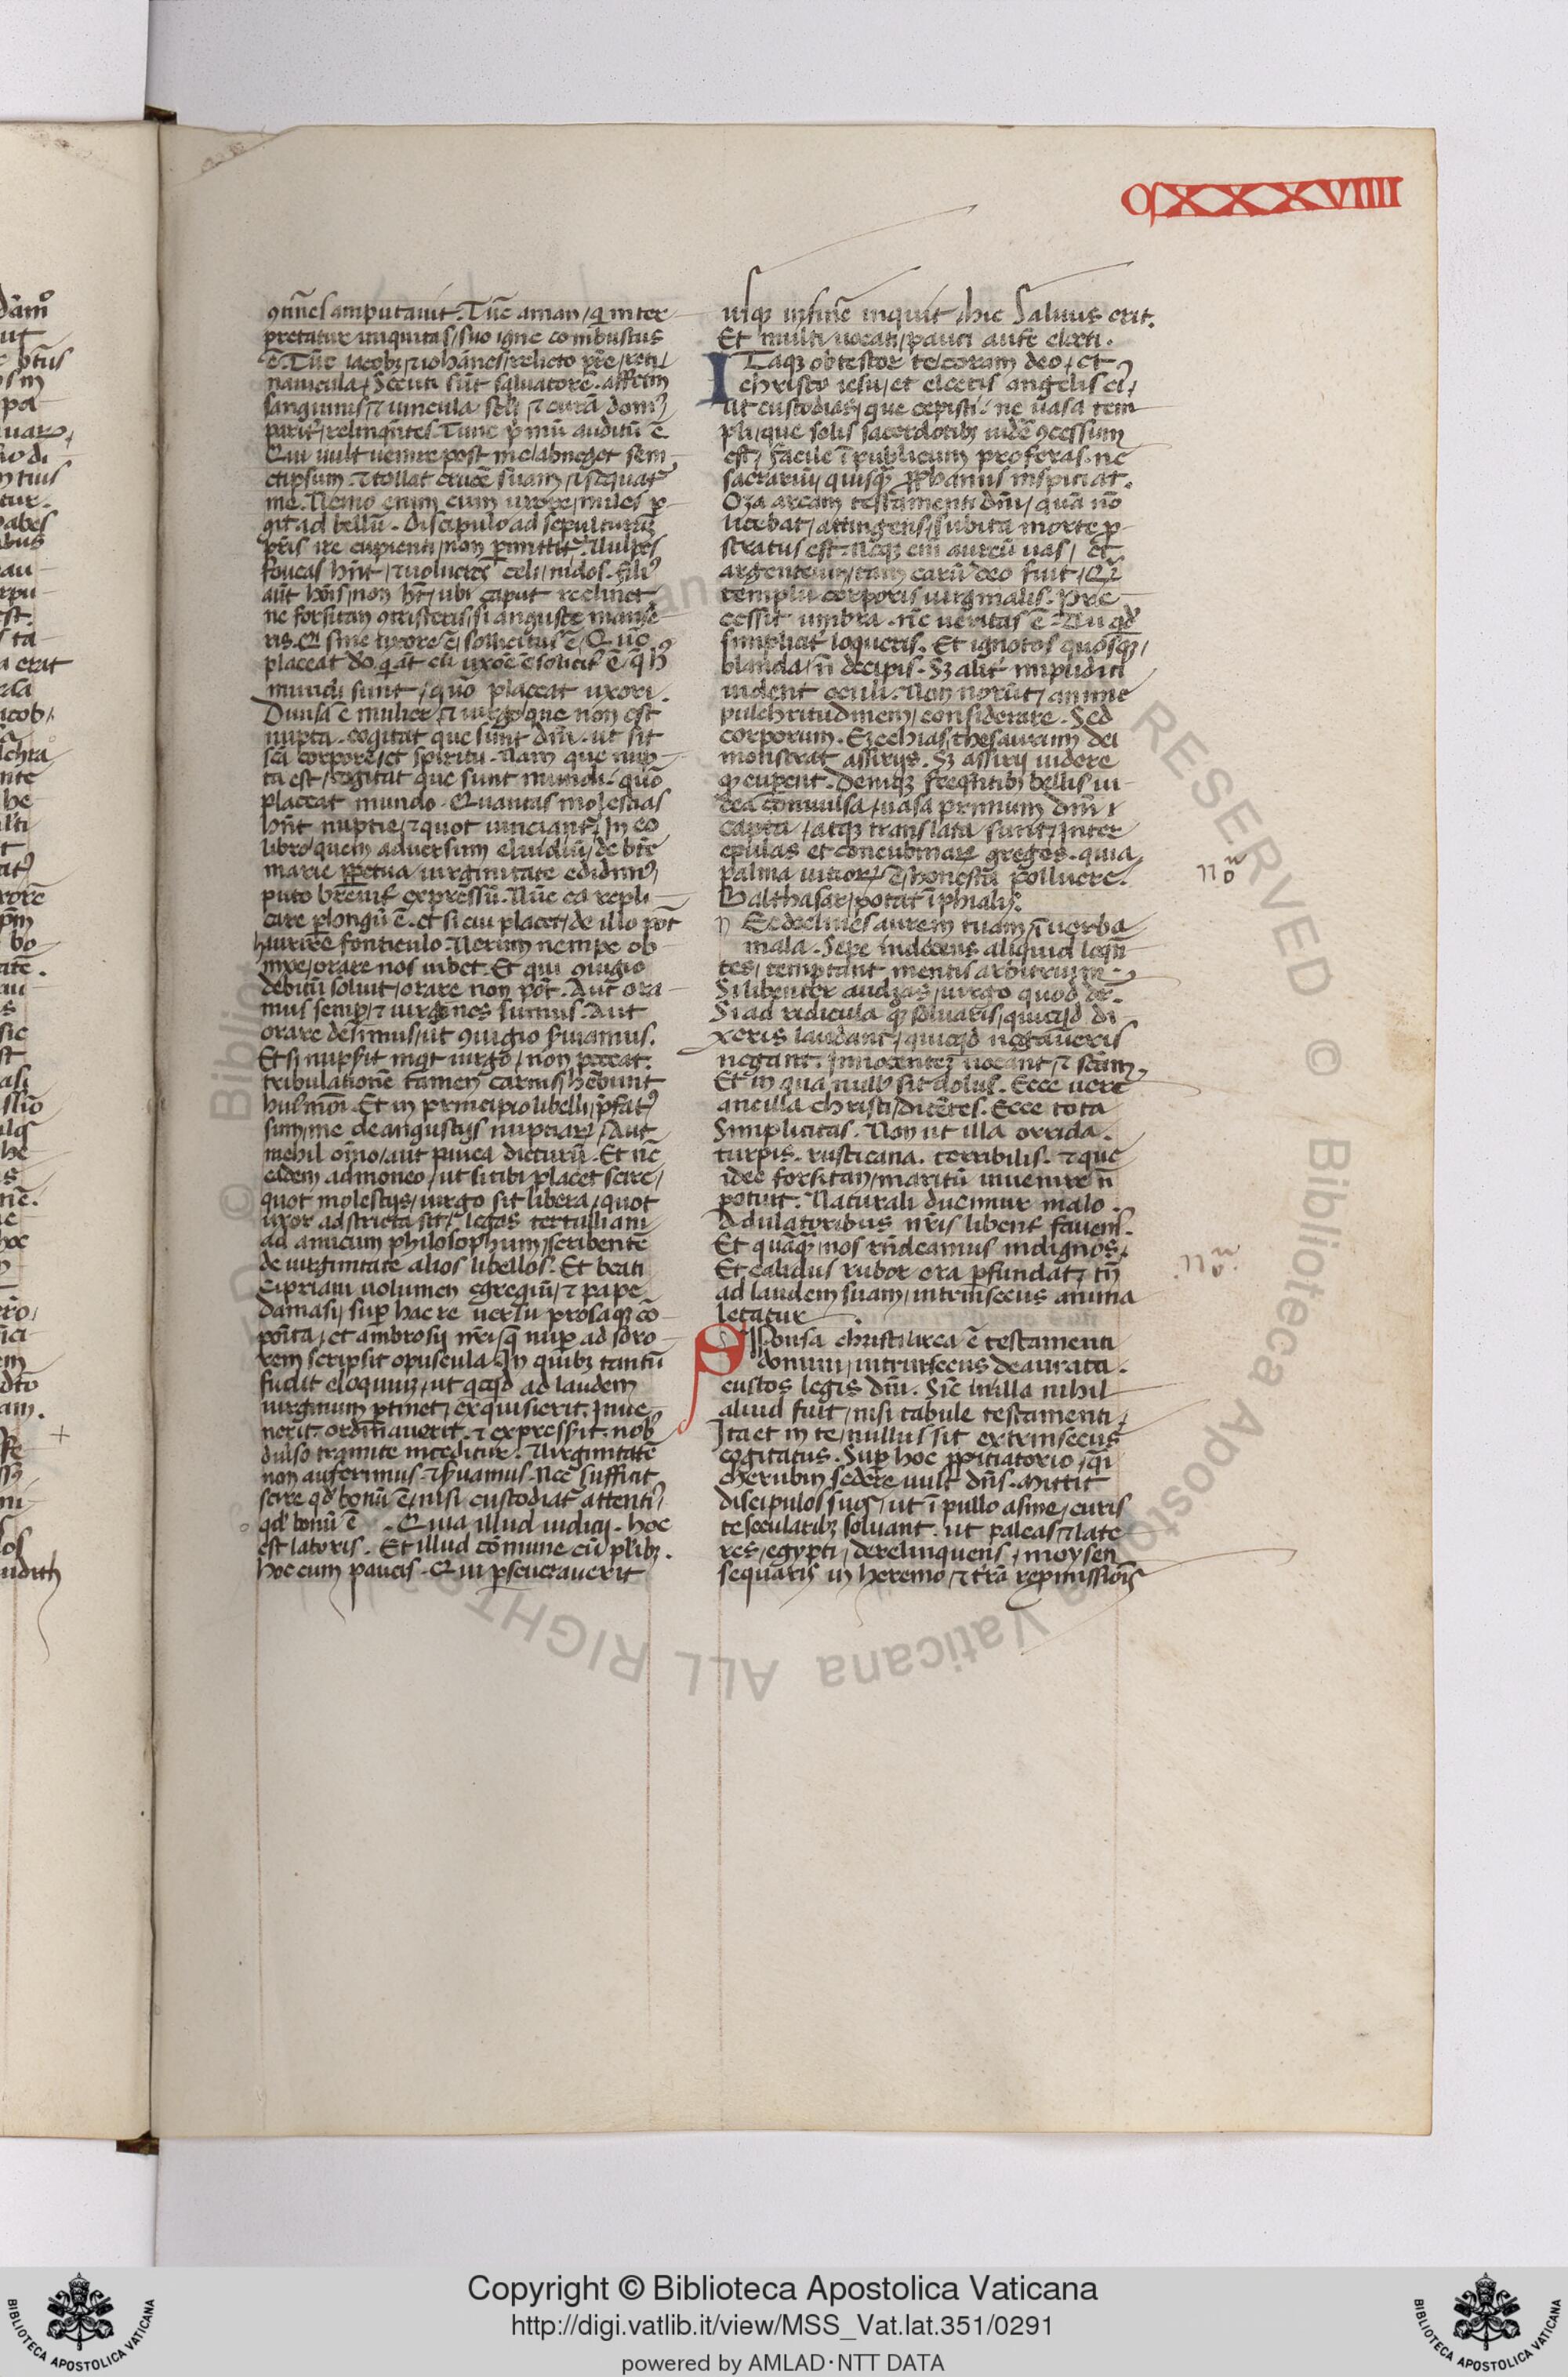 CXXXVIIII
9tinel amputauit. Tūc aman / q̄ inter
pretatur iniquitas / suo igne combustus
ē. Tūc iacobꝫ ⁊ iohānes / relicto pr̄e / reti /
nauicula / secuti sūt saluatorē. affectū
sanguinis / ⁊ uincula scl̄i ⁊ curā domꝰ
parit̄ / relinquētes. Tunc pͥmū auditū ē
Qui uult uenire post me / abneget sem
etipsum. ⁊ tollat crucē suam / ⁊ sequat̄
me. Nemo enim cum uxore / miles p̱
git ad bellū. Discipulo ad sepulturaꝫ
pr̄is ire cupienti / non p̱mittit̄. Uulpes
foueas hn̄t / ⁊ uolucres celi / nidos. filiꝰ
aūt hoīs / non ht̄ / ubi caput reclinet
ne forsitan 9tristeris / si anguste manse
ris. Qͥ sine uxore ē / sollicitus ē / Quō
placeat dō. q̄ aūt cū uxōe ē solicitꝰ ē / q̄ hꝰ
mundi sunt / quō placeat uxori.
Diuisa ē mulier / ⁊ uirgo / que non est
nupta. cogitat que sunt dn̄i. ut sit
sc̄a corpore / et spiritu. Nam que nup
ta est / cogitat que sunt mundi. quō
placeat mundo. Quantas molestias
hn̄t nuptie / ⁊ quot uinciant̄ / In eo
libro quem adversum eluidiū / de bt̄e
marie p̱petua uirginitate edidimꝰ /
puto breuit̄ expressū. Nūc ea repli
care p̱longū ē. et si cui placet / de illo pōt
haurire fonticulo. Verum nempe ob
mxe / orare nos iubet. Et qui 9iugio
debitū soluit / orare non pōt. Aut ora
mus semp̱ / ⁊ uirgines sumus. Aut
orare desimus / ut 9iugio s̄uiamus.
Et si nups̄it inqͥt uirgo / non peccat.
tribulationē tamen carnis / hēbunt
huꝰmōi. Et in principio libelli / p̄fatꝰ
sum / me de angustijs nuptiaꝝ / Aut
nichil oīno / aut pauca dicturū. Et nc̄
eadem admoneo / ut si tibi placet scire /
quot molestijs / uirgo sit libera / quot
uxor adstricta sit / legas tertulliani
ad amicum philosophum / scribentē
de uirginitate alios libellos. Et beati
Cipriani uolumen egregiū / ⁊ pape
Damasi / sup̱ hac re uersu prosaqꝫ cō
posita / et ambrosij nr̄i / q̄ nup̱ ad soro
rem scripsit opuscula. In quibꝫ tantū
fudit eloquium / ut qͥcqͥd ad laudem
uirginum p̱tinet / exquisierit. Inue
nerit. ordinauerit. ⁊ expressit. nobꝰ
diuiso tramite inceditur. Uirginitatē
non auferimus / ⁊ s̄uamus. Nec sufficit
scire qd̄ bonū ē / nisi custodiat̄ attentiꝰ /
qd̄ bonū ē. Quia illud iudicij. hoc
est latoris. Et illud cōmune cū pl̄ibꝫ.
hoc cum paucis. Qui p̱seuerauerit
usqꝫ in finē inquit / hic saluus erit.
Et multi uocati / pauci autē electi.
ITaqꝫ obtestor te / coram deo / et
christo iesu / et electis angelis eiꝰ /
ut custodias / que cepisti. ne uasa tem
pli / que solis sacerdotibꝫ uidē 9cessum
est / facile ī publicum proferas. ne
sacrariū / quisqꝫ p̱phanus inspiciat.
Oza arcam testamenti dn̄i / quā nō
licebat / attingens / subita morte p̱
stratus est. Neqꝫ eī aureū uas / et
argenteum / tam carū deo fuit / Qͣꝫ
templū corporis uirginalis. Pre
cessit umbra. nc̄ ueritas ē. Tu qd̄
simplicit̄ loqueris. Et ignotos quosqꝫ /
blanda / n̄ decipis. Sꝫ alit̄ impudici
uident oculi. Non norūt / anime
pulchritudinem / considerare. Sed
corporum. Ezechias / thesaurum dei
monstrat assirijs. Sꝫ assirij uidere
qꝫ cuperent. Deniqꝫ freqn̄tibꝫ bellis iu
dea conuulsa / uasa primum dn̄i
capta / atqꝫ translata sunt / Inter
epulas et concubinaꝝ greges. quia
palma uitioꝝ ē / honesta polluere.
Balthasar / potat ī phialis.
Ne declines aurem tuam / ī uerba
mala. Sepe indecens aliquid loqn̄
tes / temptant mentis arbitrium.
Si libenter audias / uirgo quod dr̄.
Si ad ridicula qͣꝫ soluaris / quicqͥd di
xeris laudant / quicqͥd negaueris
negant. Innocentem uocant / ⁊ sc̄am.
Et in qua nullꝰ sit dolus. Ecce uere
ancilla christi / dicētes. Ecce tota
Simplicitas. Non ut illa orrida.
turpis. rusticana. terribilis. ⁊ que
idec forsitan / maritū inuenire n̄
potuit. Naturali ducimur malo.
Adulatoribus nr̄is libent̄ fauemꝰ.
Et quāqͣꝫ nos rn̄deamus indignos.
Et calidus rubor ora p̱fundat / tn̄
ad laudem suam / intrinsecus anima
letatur.
SPonsa christi arca ē testamenti
domini / intrinsecus deaurata.
custos legis dn̄i. Sic in illa nihil
aliud fuit / nisi tabule testamenti /
Ita et in te / nullus sit extrinsecus
cogitatus. Sup̱ hoc p̱pitiatorio / qͣi
cherubin / sedere uult dn̄s. Mittit
discipulos suos / ut ī pullo asine / curis
te secularibꝫ soluant. ut paleas ⁊ late
res / egypti / derelinquens / moysen
sequaris in heremo / ⁊ tr̄ā repmissiōīs
Copyright © Biblioteca Apostolica Vaticana
http://digi.vatlib.it/view/MSS_Vat.lat.351/0291
powered by AMLAD·NTT DATA